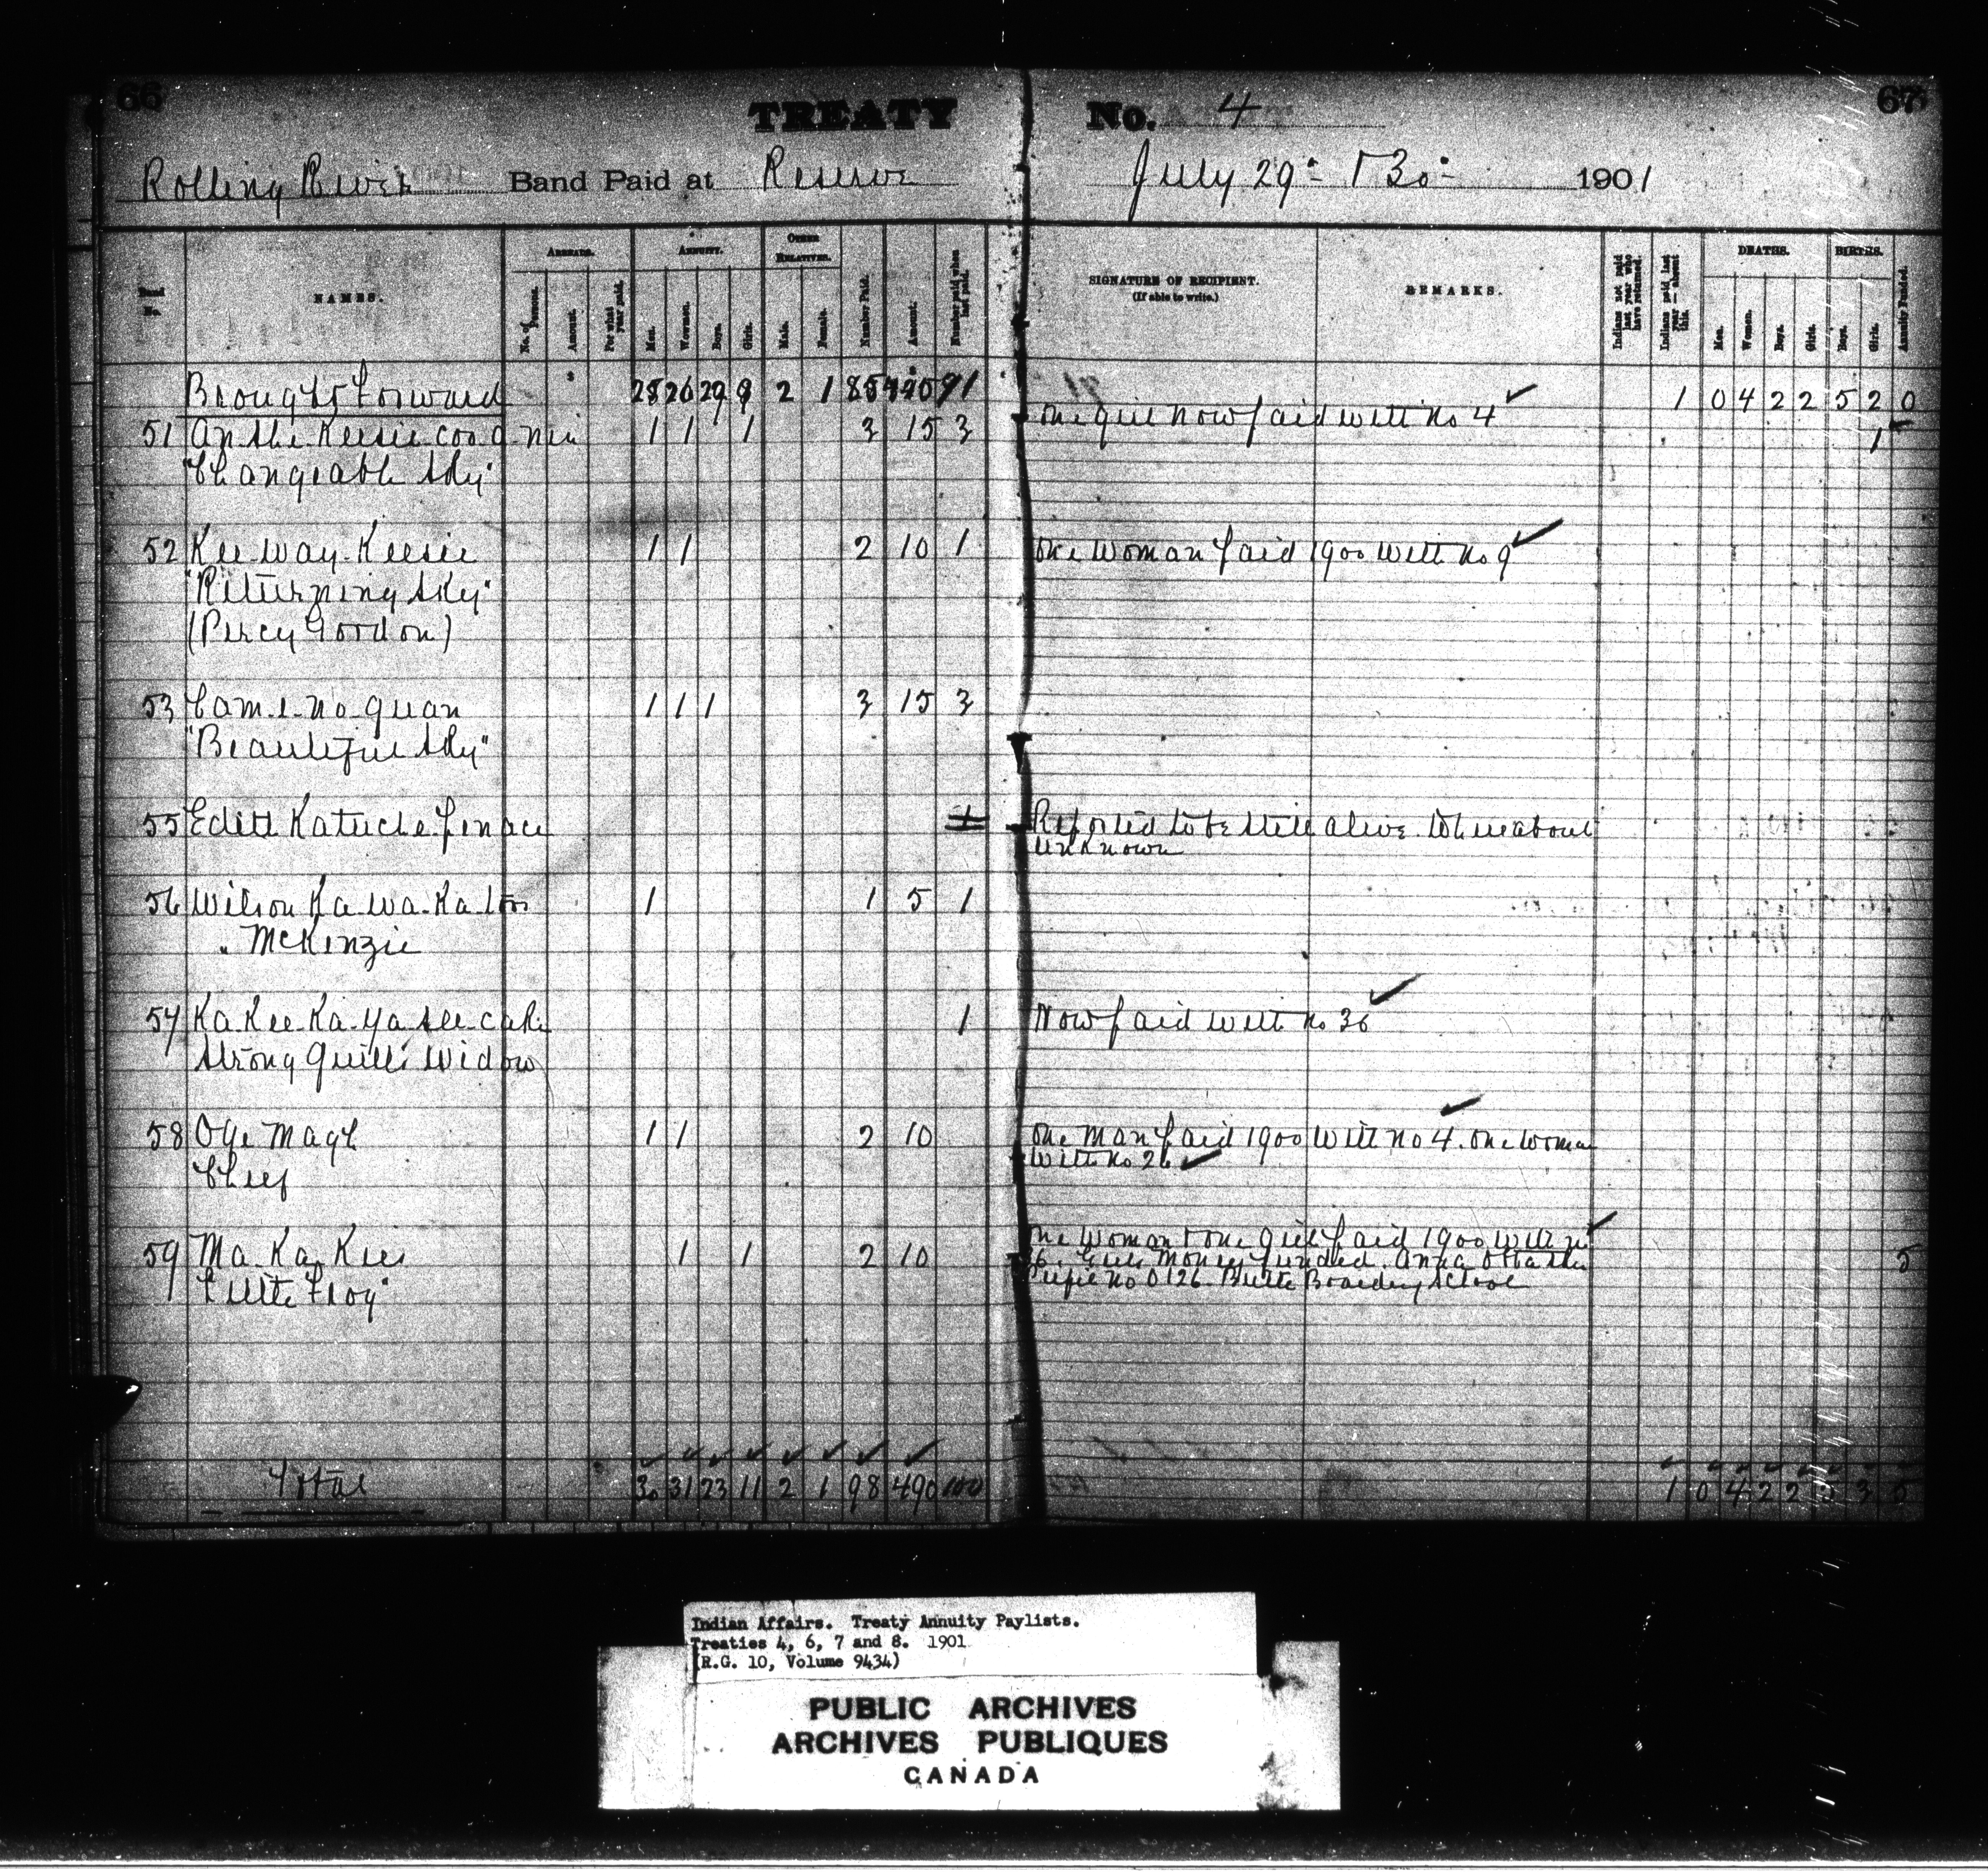 66
TREATY No. 4
67
Rolling River Band Paid at Reserve July 29 & 30 1901
ARREARS. ANNUITY. OTHER RELATIVES. DEATHS. BIRTHS.
No. NAMES. No. of Persons. Amount. For what year paid. Men. Women. Boys. Girls. Male. Female. Number Paid. Amount. Number paid when last paid. SIGNATURE OF RECIPIENT. (If able to write.) REMARKS. Indians not paid last year who have returned. Indians paid last year — absent this. Men. Women. Boys. Girls. Boys. Girls. Annuity Funded.
Brought Forward 26 2 1 91 1 0 4 2 2 5 2 0
51 An-the-Keesie-coo-a-nin 1 1 1 3 15 3 One girl now paid with No 4 1
"Changeable Sky"
52 Kee-way-Keesie 1 1 2 10 1 One woman paid 1900 with No 9
"Returning Sky"
(Percy Gordon)
53 Cam-e-no-quan 1 1 1 3 15 3
"Beautiful Sky"
55 Edith Katuche-penace Reported to be still alive. Whereabout
unknown
56 Wilson Ka-wa-Ka-toos 1 1 5 1
" McKenzie
57 Ka-Kee-Ka-ya-see-cake 1 Now paid with No 36
Strong Quill's Widow
58 Oge Magh 1 1 2 10 One man paid 1900 with No 4. One woman
Chief with No 26
59 Ma-Ka-Kees 1 1 2 10 One woman & one girl paid 1900 with No
"Little Frog" 36. Girls money funded. Anna 5
Pupil No 0126 Birtle Boarding School
Total 30 31 23 11 2 1 98 490 100 1 0 4 2 2 5 3 5
Indian Affairs. Treaty Annuity Paylists.
Treaties 4, 6, 7 and 8. 1901
(R.G. 10, Volume 9434)
PUBLIC ARCHIVES
ARCHIVES PUBLIQUES
CANADA